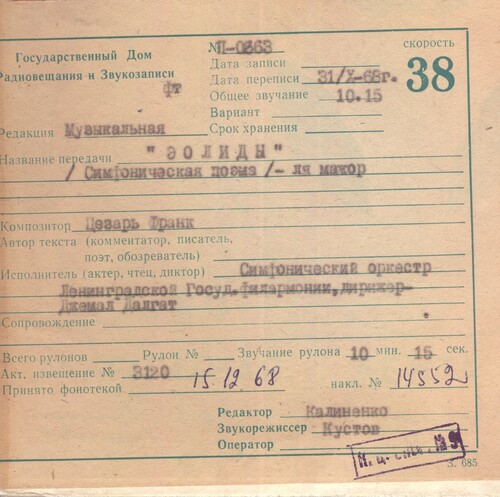 Государственный Дом
Радиовещания и Звукозаписи
фт
№ П-0363
скорость
38
Дата записи
Дата переписи 31/X-68г.
Общее звучание 10.15
Вариант
Редакция Музыкальная Срок хранения
Название передачи "ЭОЛИДЫ"
/ Симфоническая поэма /- ля мажор
Композитор Цезарь Франк
Автор текста (комментатор, писатель,
поэт, обозреватель)
Исполнитель (актер, чтец, диктор) Симфонический оркестр
Ленинградской Госуд.филармонии,дирижер-
Джемал Далгат
Сопровождение
Всего рулонов Рулон № Звучание рулона 10 мин. 15 сек.
Акт. извещение № 3120
Принято фонотекой 15.12 68 накл. № 14552
Редактор Калиненко
Звукорежиссер Кустов
Оператор
З. 685